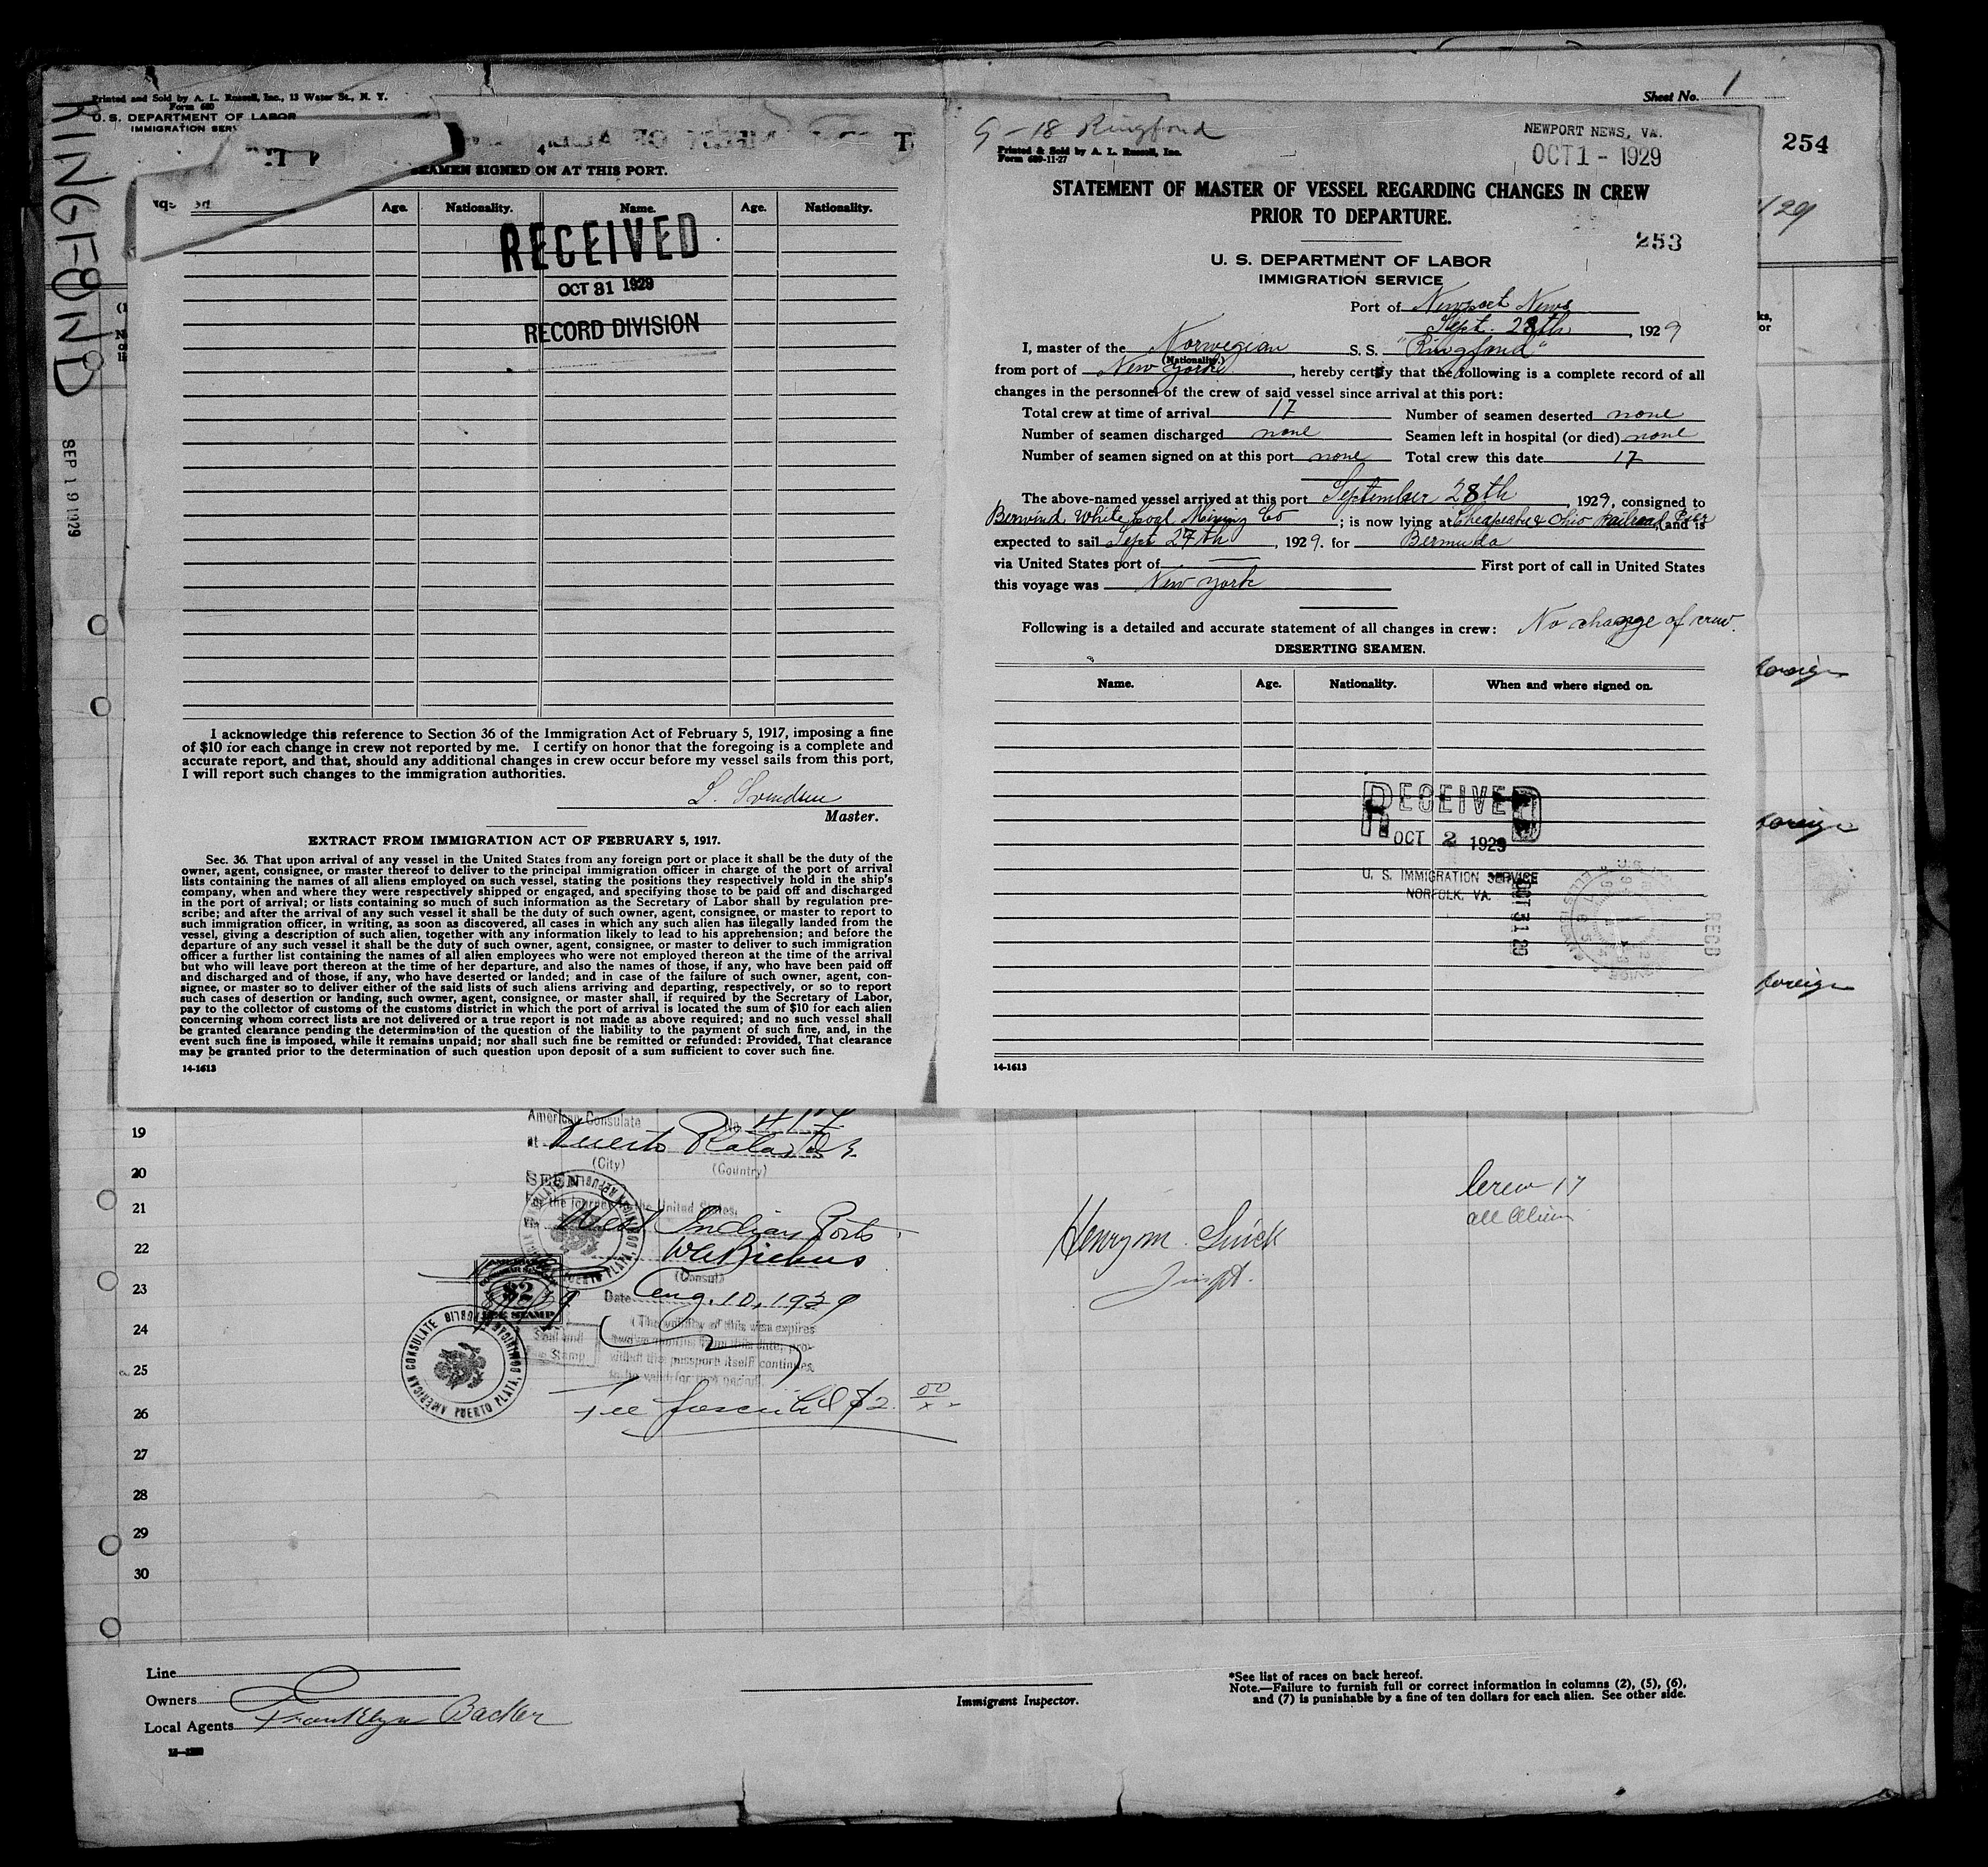 Printed and Sold by A. L. Russell, Inc., 13 Water St., N. Y.
Form 680
U. S. DEPARTMENT OF LABOR
IMMIGRATION SERV
RINGFOND
SEP 19 1929
Sheet No. 1
254
4
SEAMEN SIGNED ON AT THIS PORT.
Age. Nationality. Name. Age. Nationality.
RECEIVED
OCT 31 1929
RECORD DIVISION
I acknowledge this reference to Section 36 of the Immigration Act of February 5, 1917, imposing a fine
of $10 for each change in crew not reported by me. I certify on honor that the foregoing is a complete and
accurate report, and that, should any additional changes in crew occur before my vessel sails from this port,
I will report such changes to the immigration authorities.
Master.
EXTRACT FROM IMMIGRATION ACT OF FEBRUARY 5, 1917.
Sec. 36. That upon arrival of any vessel in the United States from any foreign port or place it shall be the duty of the
owner, agent, consignee, or master thereof to deliver to the principal immigration officer in charge of the port of arrival
lists containing the names of all aliens employed on such vessel, stating the positions they respectively hold in the ship's
company, when and where they were respectively shipped or engaged, and specifying those to be paid off and discharged
in the port of arrival; or lists containing so much of such information as the Secretary of Labor shall by regulation pre-
scribe; and after the arrival of any such vessel it shall be the duty of such owner, agent, consignee, or master to report to
such immigration officer, in writing, as soon as discovered, all cases in which any such alien has illegally landed from the
vessel, giving a description of such alien, together with any information likely to lead to his apprehension; and before the
departure of any such vessel it shall be the duty of such owner, agent, consignee, or master to deliver to such immigration
officer a further list containing the names of all alien employees who were not employed thereon at the time of the arrival
but who will leave port thereon at the time of her departure, and also the names of those, if any, who have been paid off
and discharged and of those, if any, who have deserted or landed; and in case of the failure of such owner, agent, con-
signee, or master so to deliver either of the said lists of such aliens arriving and departing, respectively, or so to report
such cases of desertion or landing, such owner, agent, consignee, or master shall, if required by the Secretary of Labor,
pay to the collector of customs of the customs district in which the port of arrival is located the sum of $10 for each alien
concerning whom correct lists are not delivered or a true report is not made as above required; and no such vessel shall
be granted clearance pending the determination of the question of the liability to the payment of such fine, and, in the
event such fine is imposed, while it remains unpaid; nor shall such fine be remitted or refunded: Provided, That clearance
may be granted prior to the determination of such question upon deposit of a sum sufficient to cover such fine.
14-1613
9-18 Ringfond
NEWPORT NEWS, VA.
OCT 1 - 1929
Printed & Sold by A. L. Russell, Inc.
Form 689-11-27
STATEMENT OF MASTER OF VESSEL REGARDING CHANGES IN CREW
PRIOR TO DEPARTURE.
253
U. S. DEPARTMENT OF LABOR
IMMIGRATION SERVICE
Port of Newport News
Sept. 28th, 1929
I, master of the Norwegian S. S. "Ringfond"
(Nationality.)
from port of New York, hereby certify that the following is a complete record of all
changes in the personnel of the crew of said vessel since arrival at this port:
Total crew at time of arrival 17 Number of seamen deserted none
Number of seamen discharged none Seamen left in hospital (or died) none
Number of seamen signed on at this port none Total crew this date 17
The above-named vessel arrived at this port September 28th, 1929, consigned to
Berwind White Coal Mining Co; is now lying at Cheapeake & Ohio Railroad Pier, and is
expected to sail Sept 29th, 1929. for Bermuda
via United States port of First port of call in United States
this voyage was New York
Following is a detailed and accurate statement of all changes in crew: No change of crew.
DESERTING SEAMEN.
Name. Age. Nationality. When and where signed on.
RECEIVED
OCT 2 1929
U. S. IMMIGRATION SERVICE
NORFOLK, VA.
OCT 31 29
RECD
14-1613
/29
ks,
or
foreign
foreign
foreign
19
20
21
22
23
24
25
26
27
28
29
30
American Consulate No.
at Puerto Plata
(City) (Country)
SEEN
For the journey to the United States,
via West Indian Ports
(Consul)
Date Aug. 10, 1929
(The validity of this visa expires
twelve months from this date, pro-
vided the passport itself continues
to be valid for that period.
Seal and
Stamp
$2
FEE STAMP
AMERICAN CONSULATE PUERTO PLATA, DOMINICAN REPUBLIC
Fee $2.00
Henry M.
Inspt.
Crew 17
all Alien
Line
Owners
Local Agents Franklyn Backer
Immigrant Inspector.
*See list of races on back hereof.
Note.—Failure to furnish full or correct information in columns (2), (5), (6),
and (7) is punishable by a fine of ten dollars for each alien. See other side.